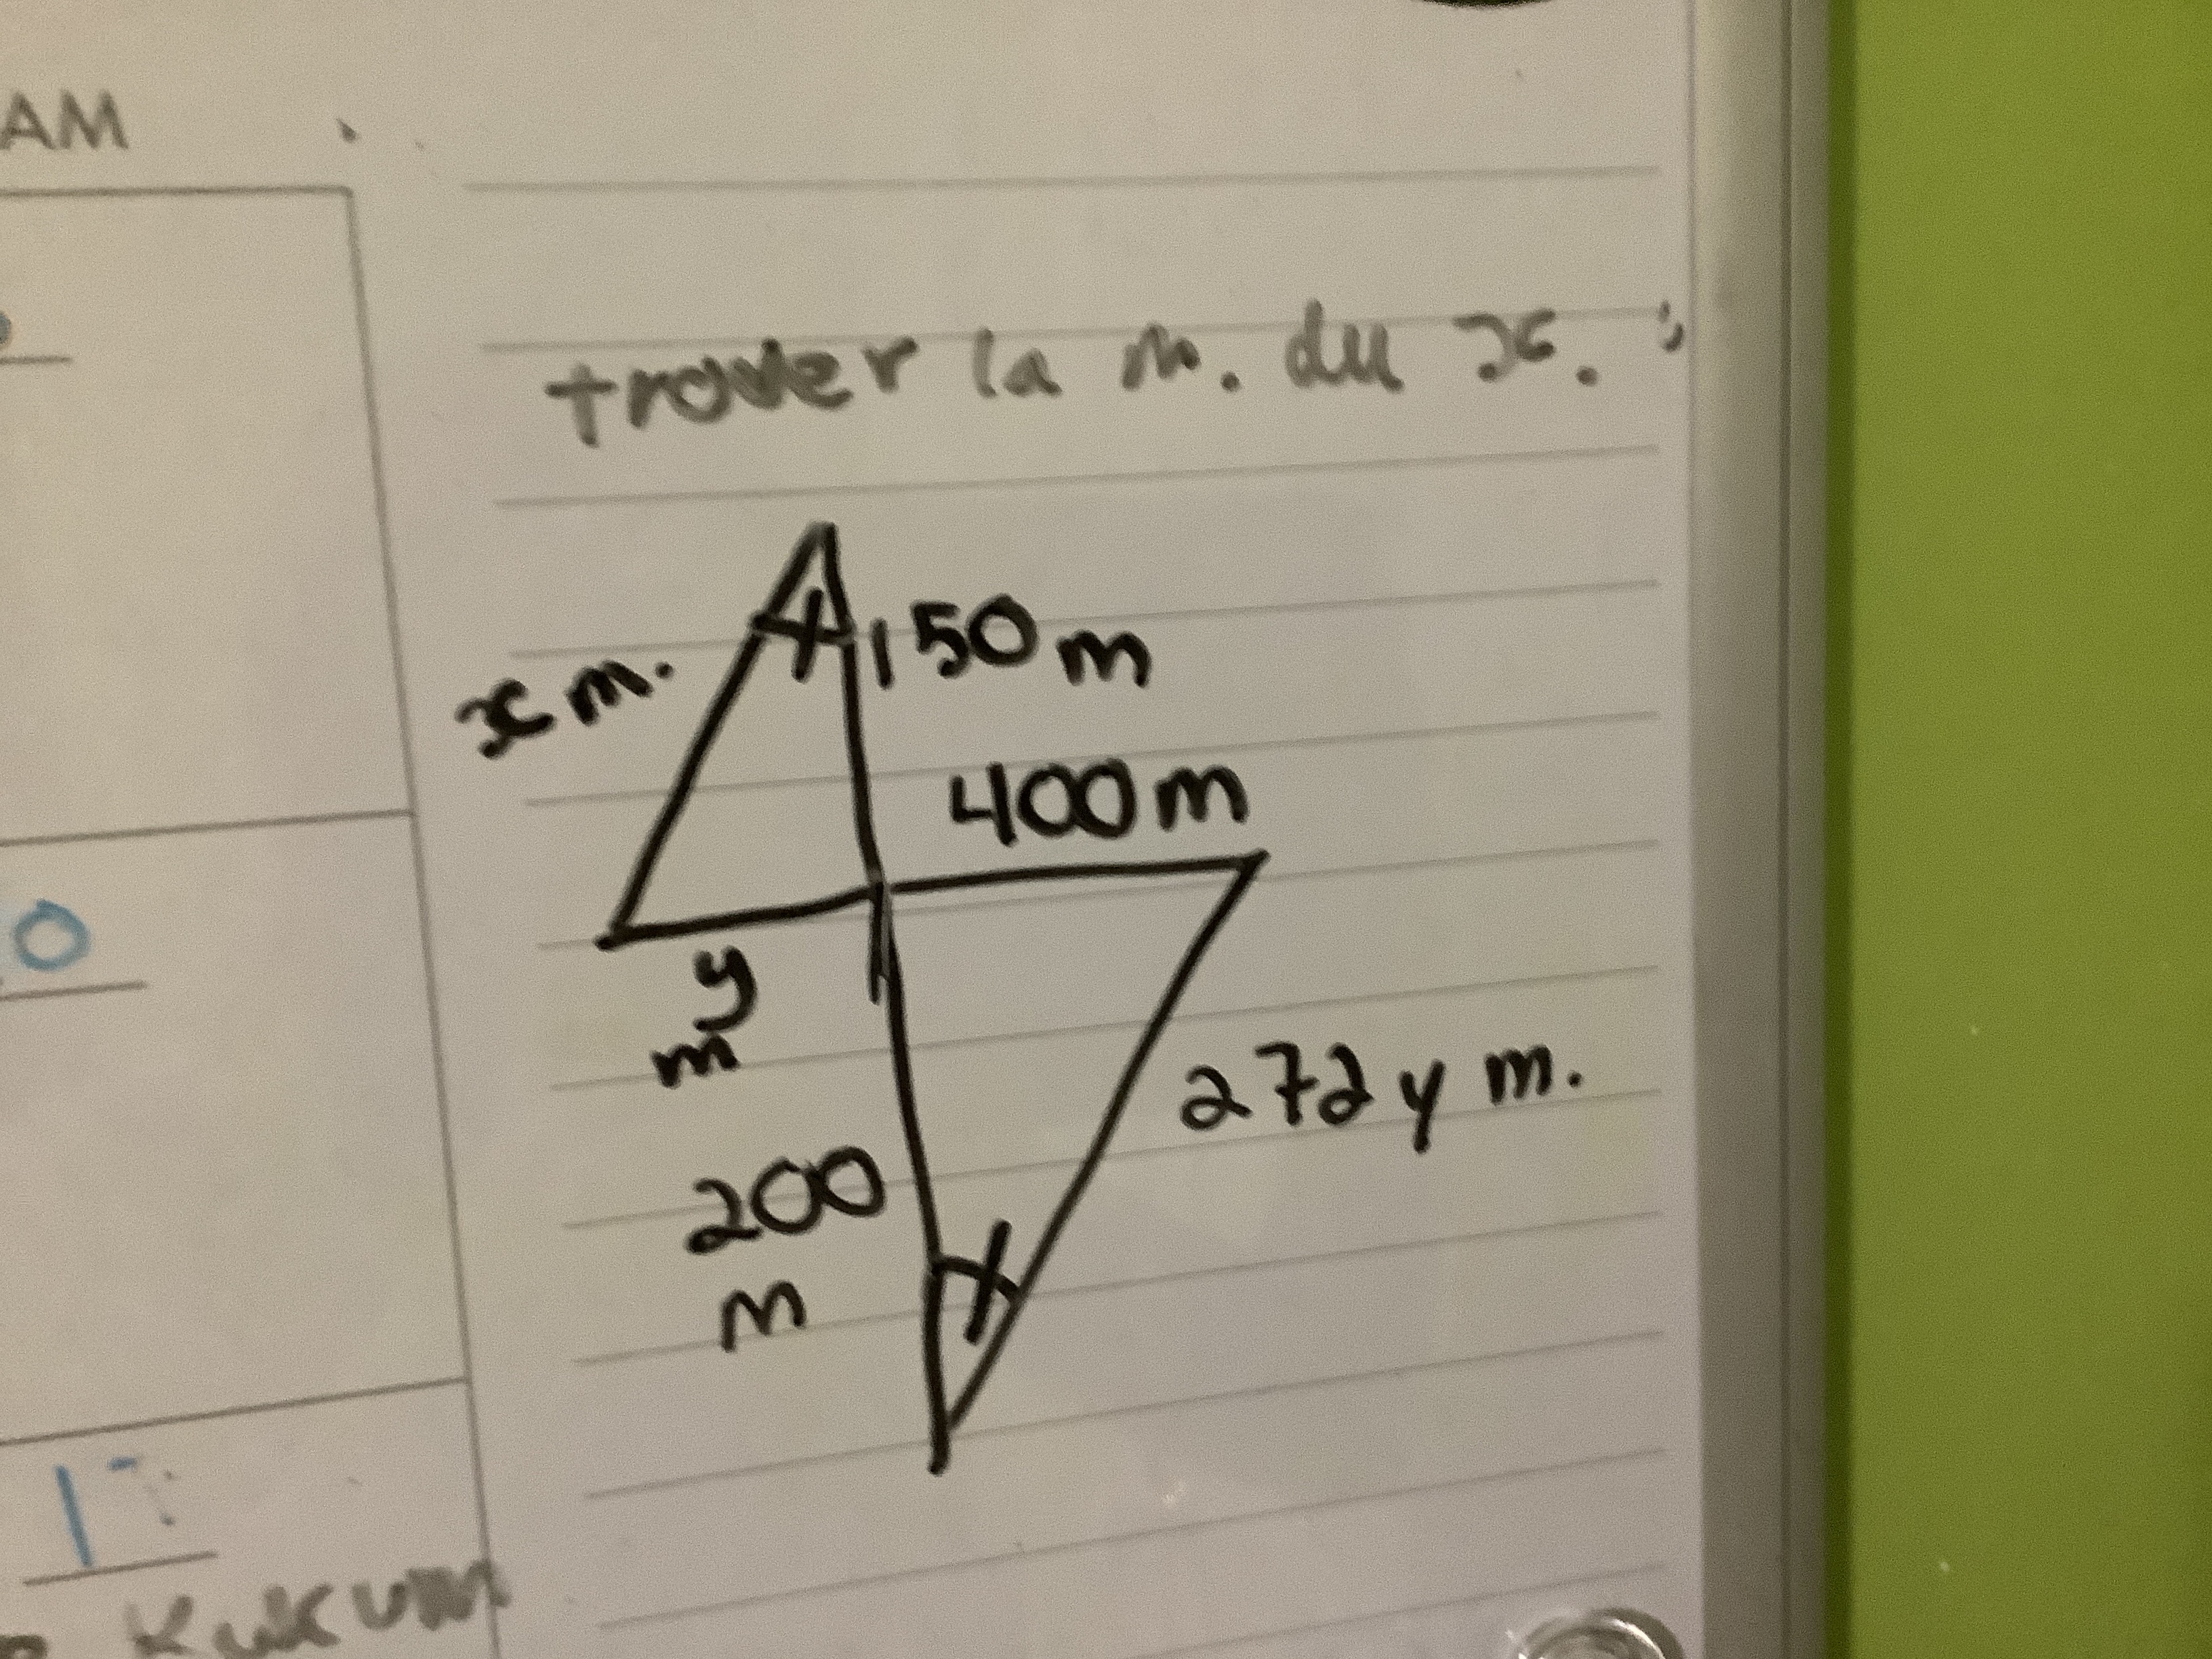 AM
trouver la m. du x. :
150 m
x m.
400 m
y
m
272 y m.
200
m
0
17
Kukum